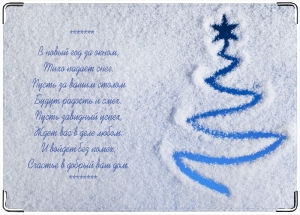 *******
В новый год за окном,
Тихо падает снег.
Пусть за вашим столом
Будут радость и смех.
Пусть завидный успех,
Ждет вас в деле любом.
И войдет без помех,
Счастье в добрый ваш дом.
********